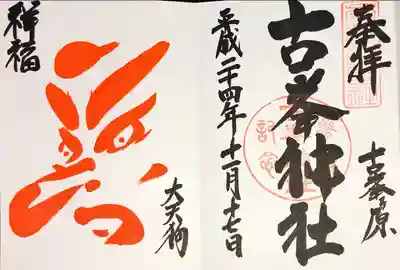 奉拝
古峯原
古峯神社
平成二十四年十一月十七日
祥福
大天狗